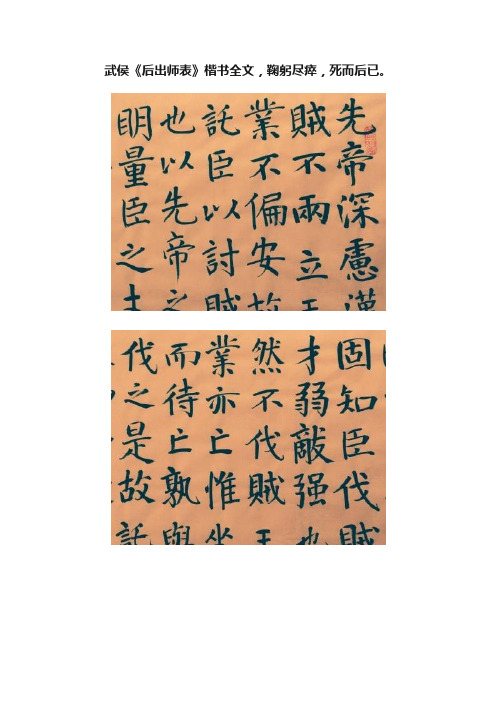 武侯《后出师表》楷书全文，鞠躬尽瘁，死而后已。
先帝深慮漢
賊不兩立王
業不偏安故
託臣以討賊
也以先帝之
眀量臣之
固知臣伐賊
才弱敵强也
然不伐賊王
業亦亡惟坐
而待亡孰與
伐之是故託